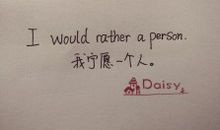 I would rather a person.
我宁愿一个人。
Daisy